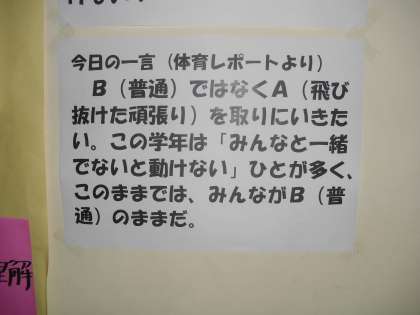 今日の一言（体育レポートより）
　B（普通）ではなくA（飛び
抜けた頑張り）を取りにいきた
い。この学年は「みんなと一緒
でないと動けない」ひとが多く、
このままでは、みんながB（普
通）のままだ。
解